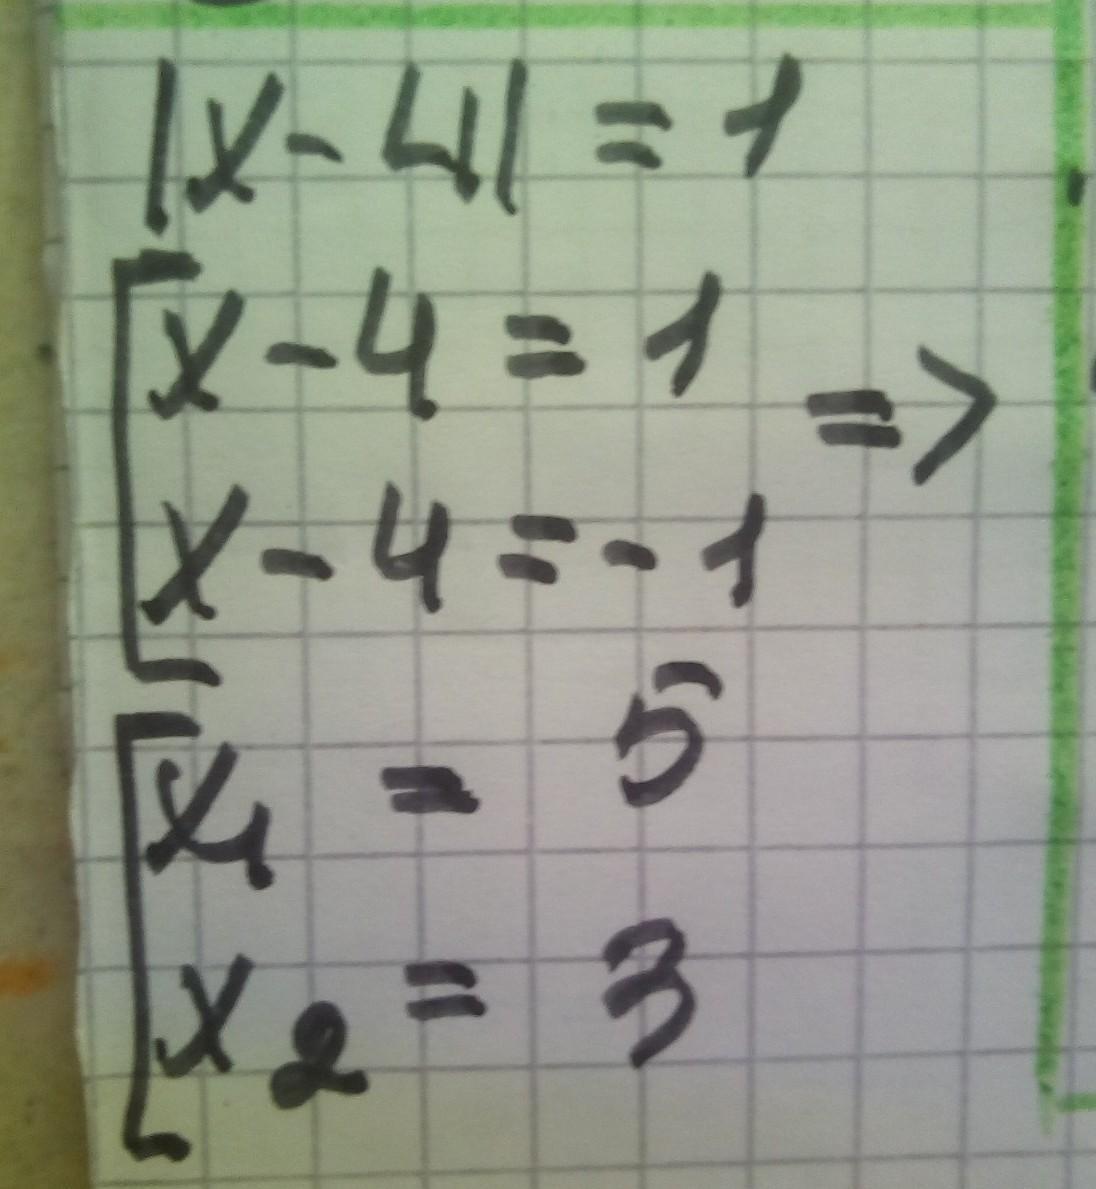 |x - 4| = 1
x - 4 = 1
=>
x - 4 = - 1
x₁ = 5
x₂ = 3